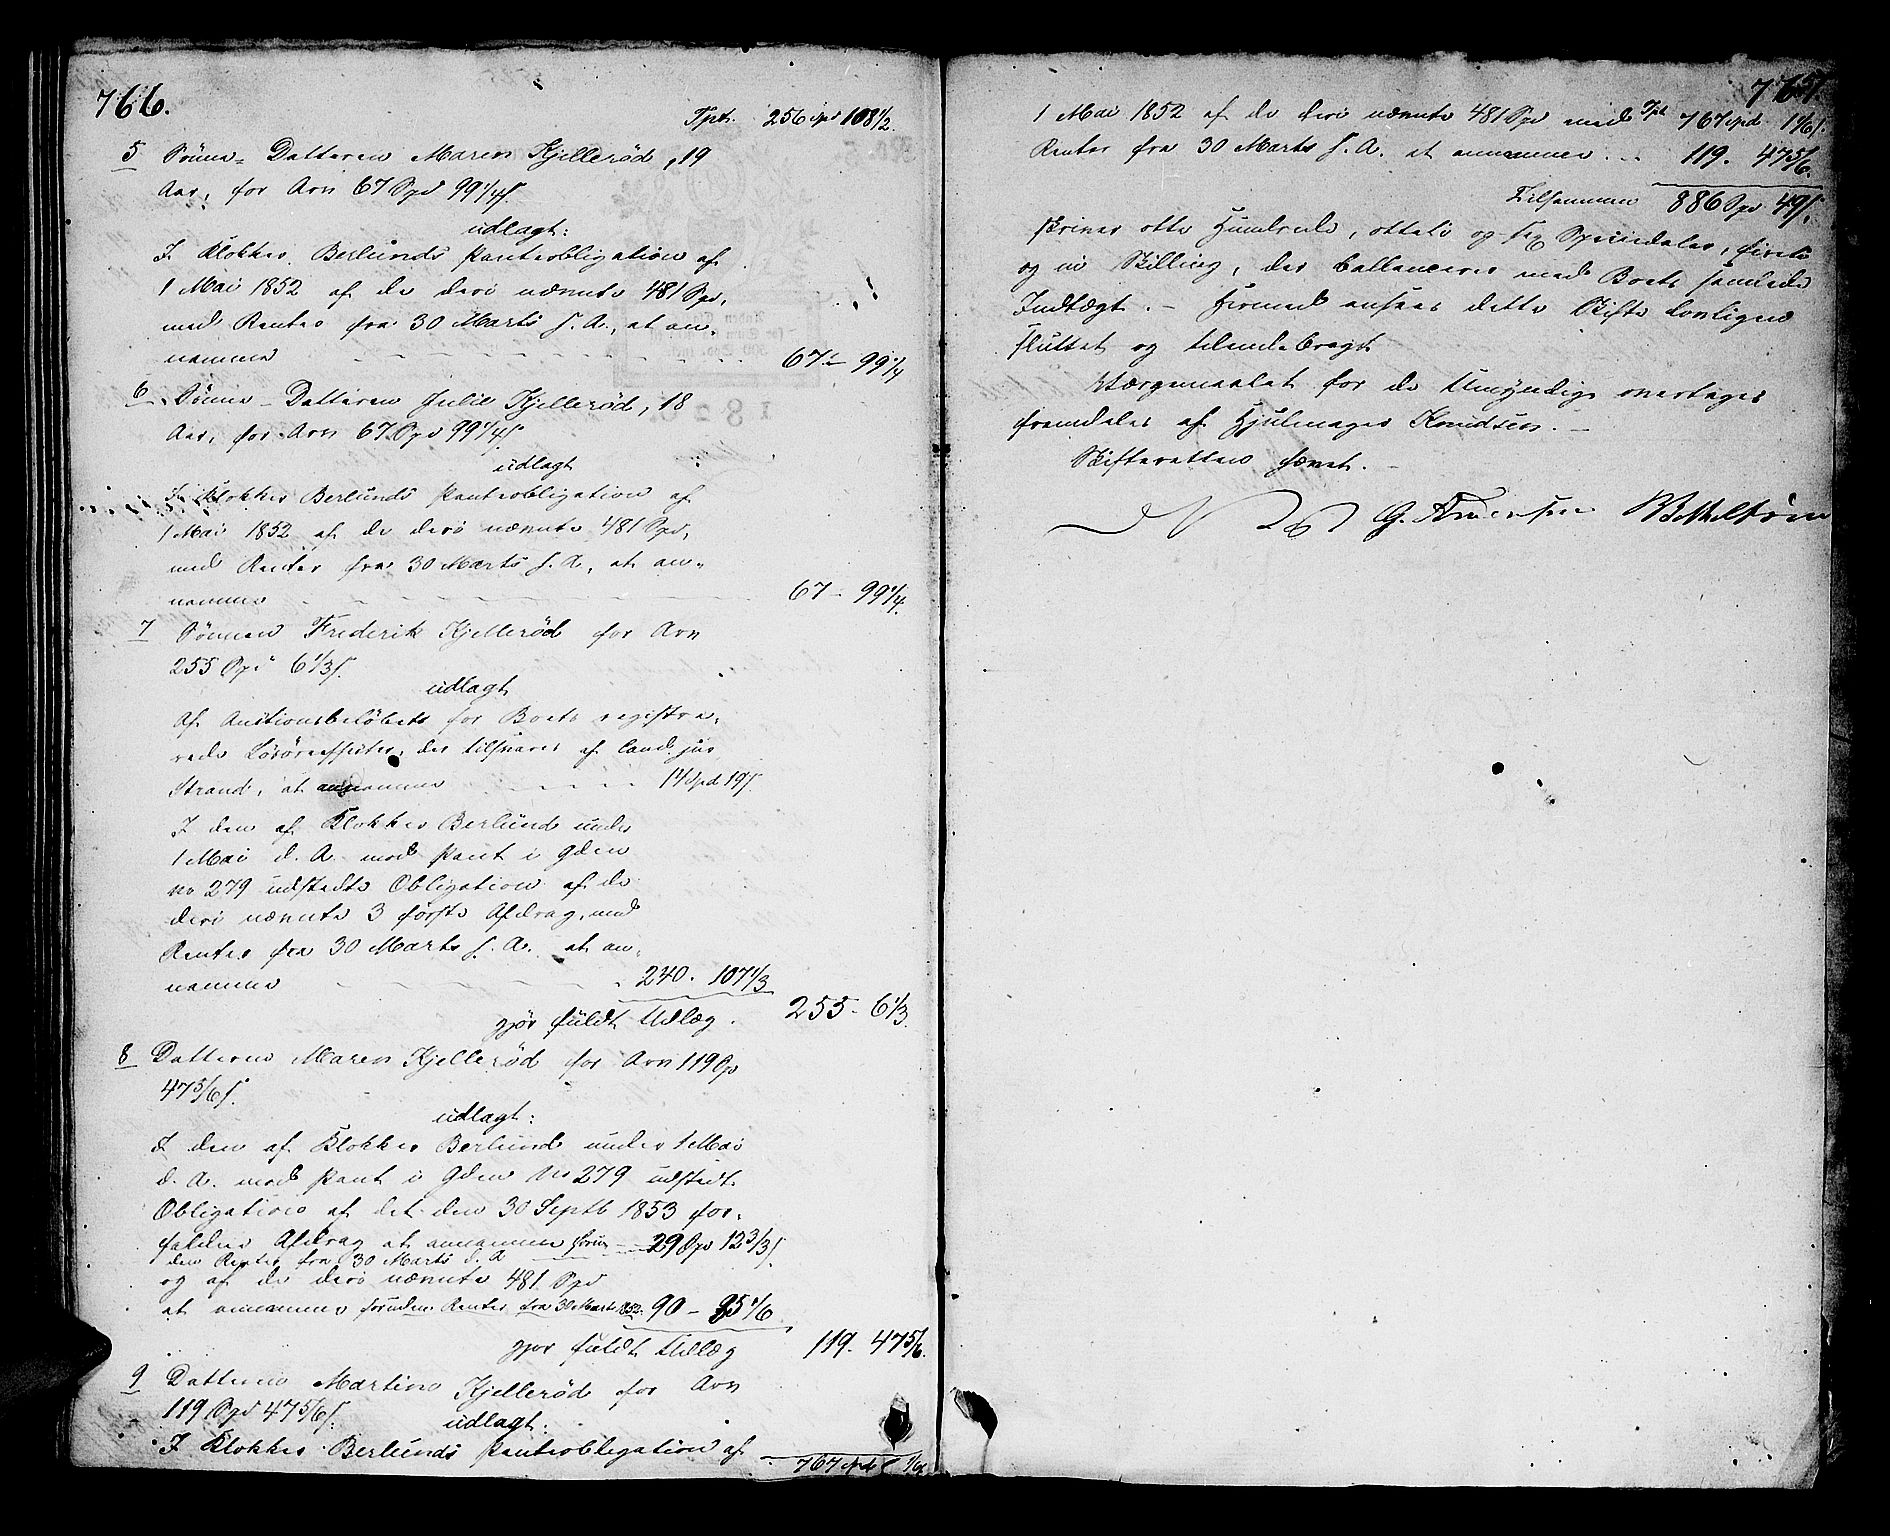 766.
Tpt. 256 Spd 108 1/2.
5 Sønne-Datteren Maren Kjellerød, 19
Aar, for Arv 67 Spd 99 1/4 s.
udlagt:
I Klokker Berlunds Panteobligation af
1 Mai 1852 af de deri nævnte 481 Spd,
med Renter fra 30 Marts s. A., at an-
namme 67 - 99 1/4
6 Sønne-Datteren Julie Kjellerød, 18
Aar, for Arv 67 Spd 99 1/4 s.
udlagt
I Klokker Berlunds Panteobligation af
1 Mai 1852 af de deri nævnte 481 Spd,
med Renter fra 30 Marts s. A., at an-
namme 67 - 99 1/4.
7 Sønnen Frederik Kjellerød for Arv
255 Spd 6 1/3 s.
udlagt
Af Auctionsbeløbet for Boets registre-
rede Løsøreeffecter, der tilsvares af Cand. jur
Strand, at annamme 14 Spd 19 s.
I den af Klokker Berlund under
1 Mai d. A. mod Pant i Gden
No 279 udstedte Obligation af de
deri nævnte 3 første Afdrag, med
Renter fra 30 Marts s. A. at an-
namme 240. 107 1/3
gjør fuldt Udlæg. 255 - 6 1/3.
8 Datteren Maren Kjellerød for Arv 119 Sp
47 5/6 s.
udlagt:
I den af Klokker Berlund under 1 Mai
d. A. mod Pant i Gden No 279 udstedt
Obligation af det den 30 Septb 1853 for-
faldne Afdrag at annamme foru- 29 Spd 12 2/3 s.
den Renter fra 30 Marts d. A
og af de deri nævnte 481 Spd
at annamme foruden Renter fra 30 Marts 1852. 90 - 35 1/6
gjør fuldt Udlæg 119. 47 5/6.
9 Datteren Martine Kjellerød for Arv
119 Spd 47 5/6 s.
udlagt:
I Klokker Berlunds Panteobligation af
767 Spd 1 1/6 s
767
1 Mai 1852 af de deri nævnte 481 Spd med Tpt 767 Spd 1 1/6 s.
Renter fra 30 Marts s. A. at annamme 119. 47 5/6.
Tilsammen 886 Spd 49 s.
skriver otte Hundrede, otteti og sex Speciedaler, fireti
og ni Skilling, der ballancerer med Boets samlede
Indtægt. - Hermed ansees dette Skifte lovligen
sluttet og tilendebragt
Værgemaalet for de Umyndige overtages
fremdeles af Hjulmager Knudsen. -
Skifteretten hævet. -
G. Andersen